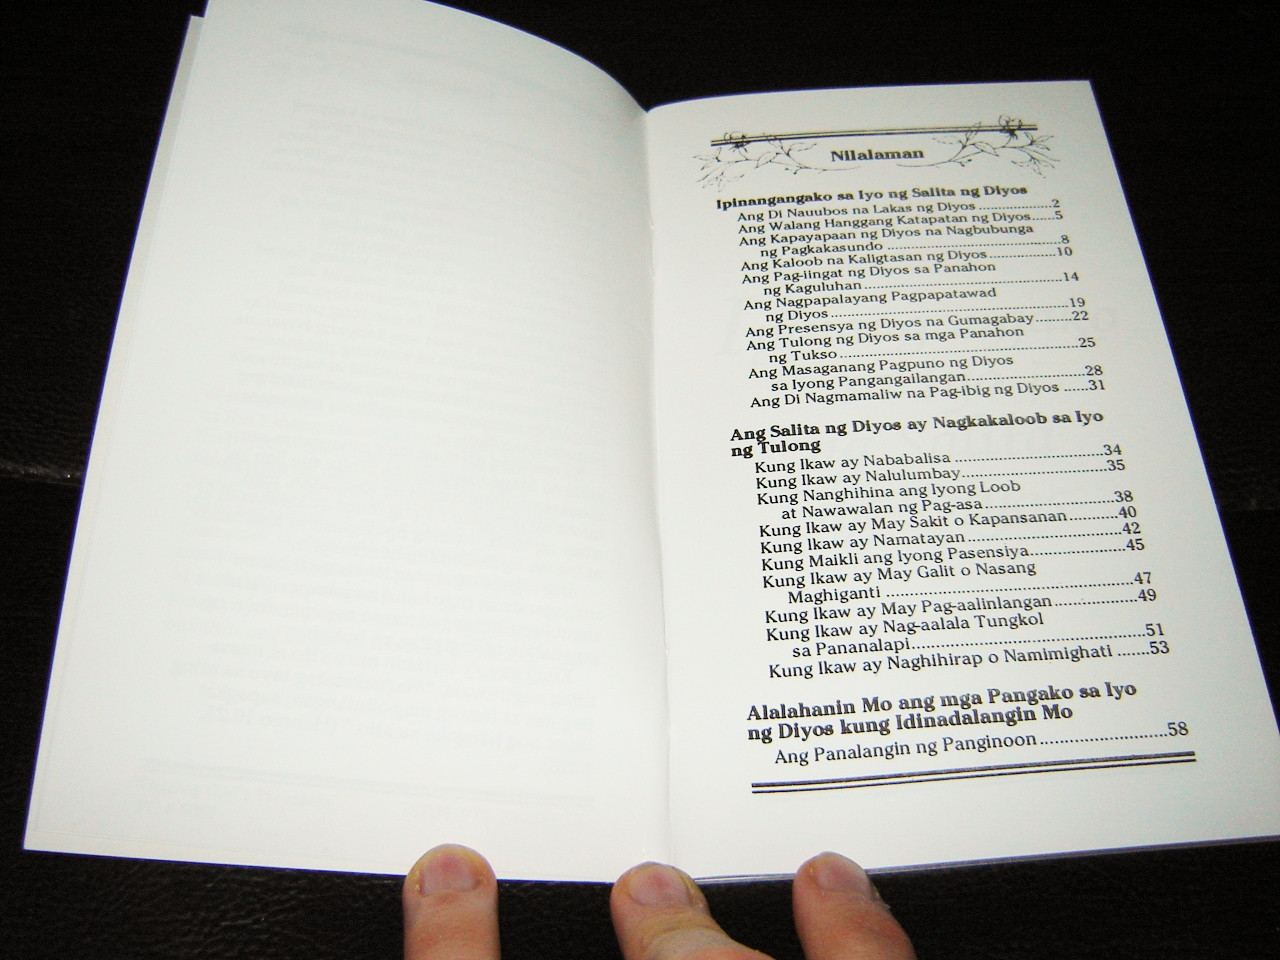 Nilalaman
Ipinangangako sa Iyo ng Salita ng Diyos
Ang Di Nauubos na Lakas ng Diyos ..................2
Ang Walang Hanggang Katapatan ng Diyos......5
Ang Kapayapaan ng Diyos na Nagbubunga
ng Pagkakasundo ..........................................8
Ang Kaloob na Kaligtasan ng Diyos.................10
Ang Pag-iingat ng Diyos sa Panahon
ng Kaguluhan ................................................14
Ang Nagpapalayang Pagpapatawad
ng Diyos ..........................................................19
Ang Presensya ng Diyos na Gumagabay .........22
Ang Tulong ng Diyos sa mga Panahon
ng Tukso ..........................................................25
Ang Masaganang Pagpuno ng Diyos
sa Iyong Pangangailangan.............................28
Ang Di Nagmamaliw na Pag-ibig ng Diyos ......31
Ang Salita ng Diyos ay Nagkakaloob sa Iyo
ng Tulong
Kung Ikaw ay Nababalisa ....................................34
Kung Ikaw ay Nalulumbay...................................35
Kung Nanghihina ang Iyong Loob
at Nawawalan ng Pag-asa ...............................38
Kung Ikaw ay May Sakit o Kapansanan ..........40
Kung Ikaw ay Namatayan ....................................42
Kung Maikli ang Iyong Pasensiya.......................45
Kung Ikaw ay May Galit o Nasang
Maghiganti .......................................................47
Kung Ikaw ay May Pag-aalinlangan .................49
Kung Ikaw ay Nag-aalala Tungkol
sa Pananalapi...................................................51
Kung Ikaw ay Naghihirap o Namimighati .......53
Alalahanin Mo ang mga Pangako sa Iyo
ng Diyos kung Idinadalangin Mo
Ang Panalangin ng Panginoon ...........................58